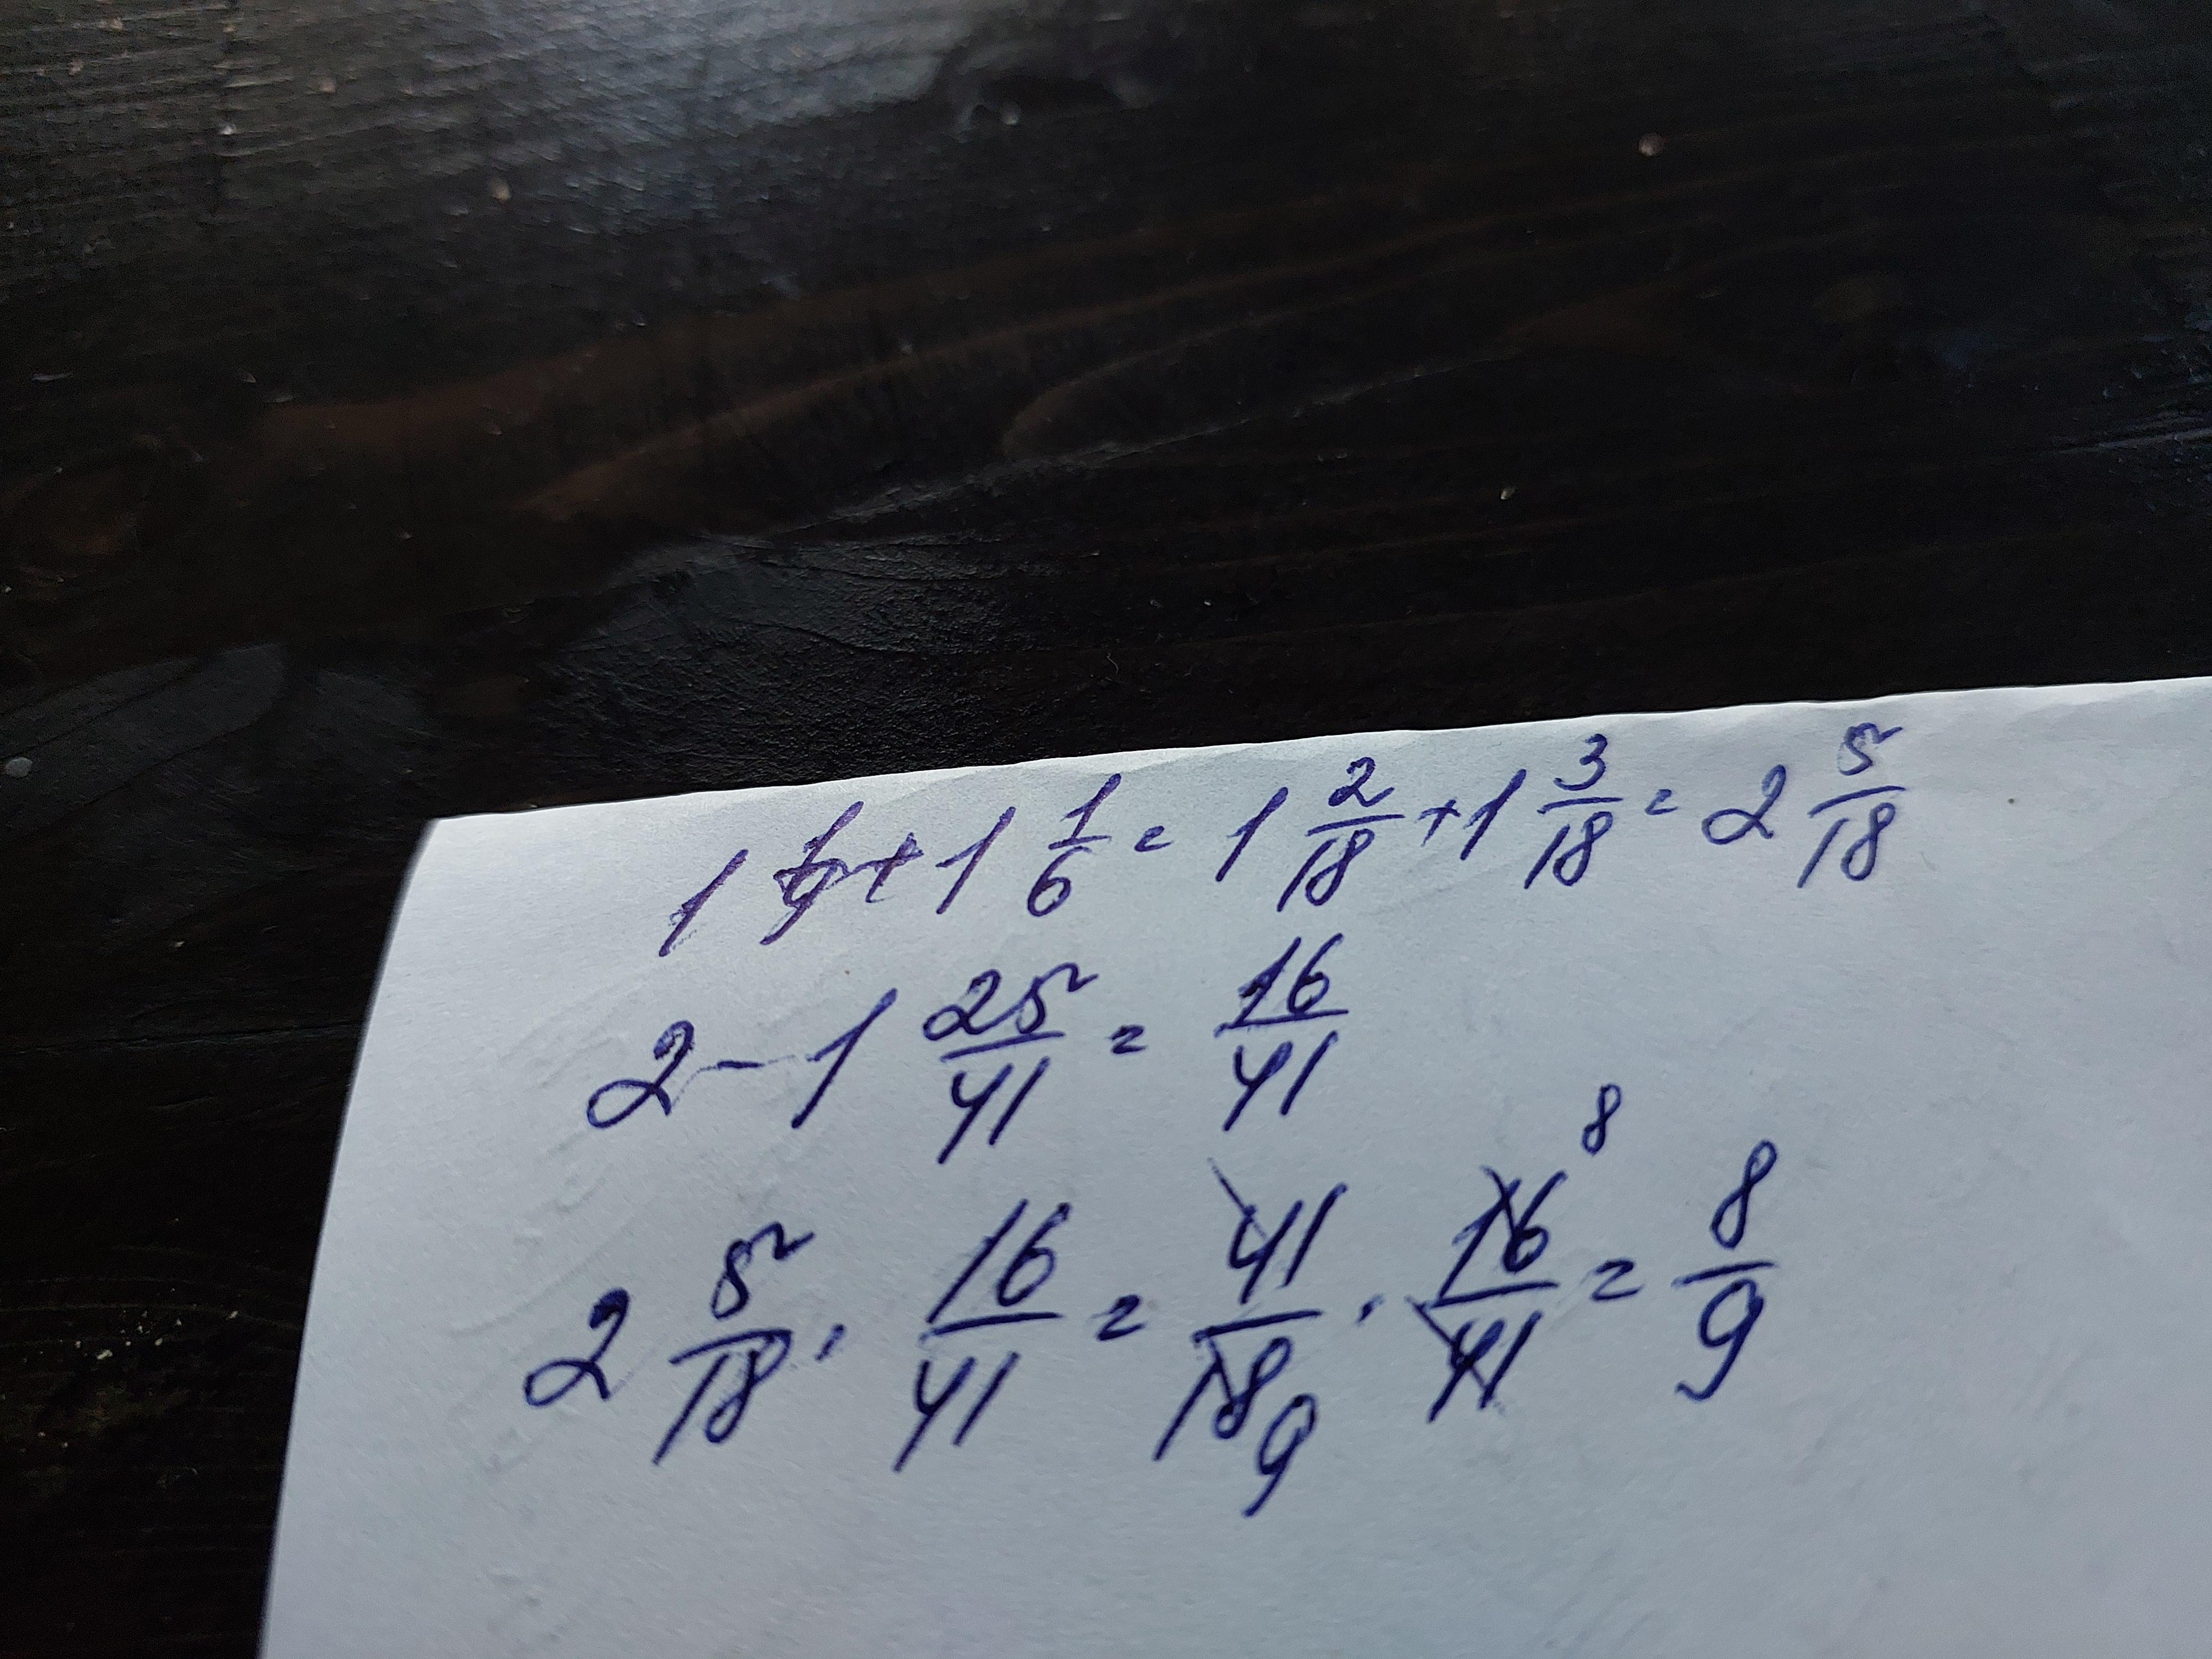 1 1/9 + 1 1/6 = 1 2/18 + 1 3/18 = 2 5/18
2 - 1 25/41 = 16/41
2 5/18 · 16/41 = 41/18 9 · 16/41 8 = 8/9